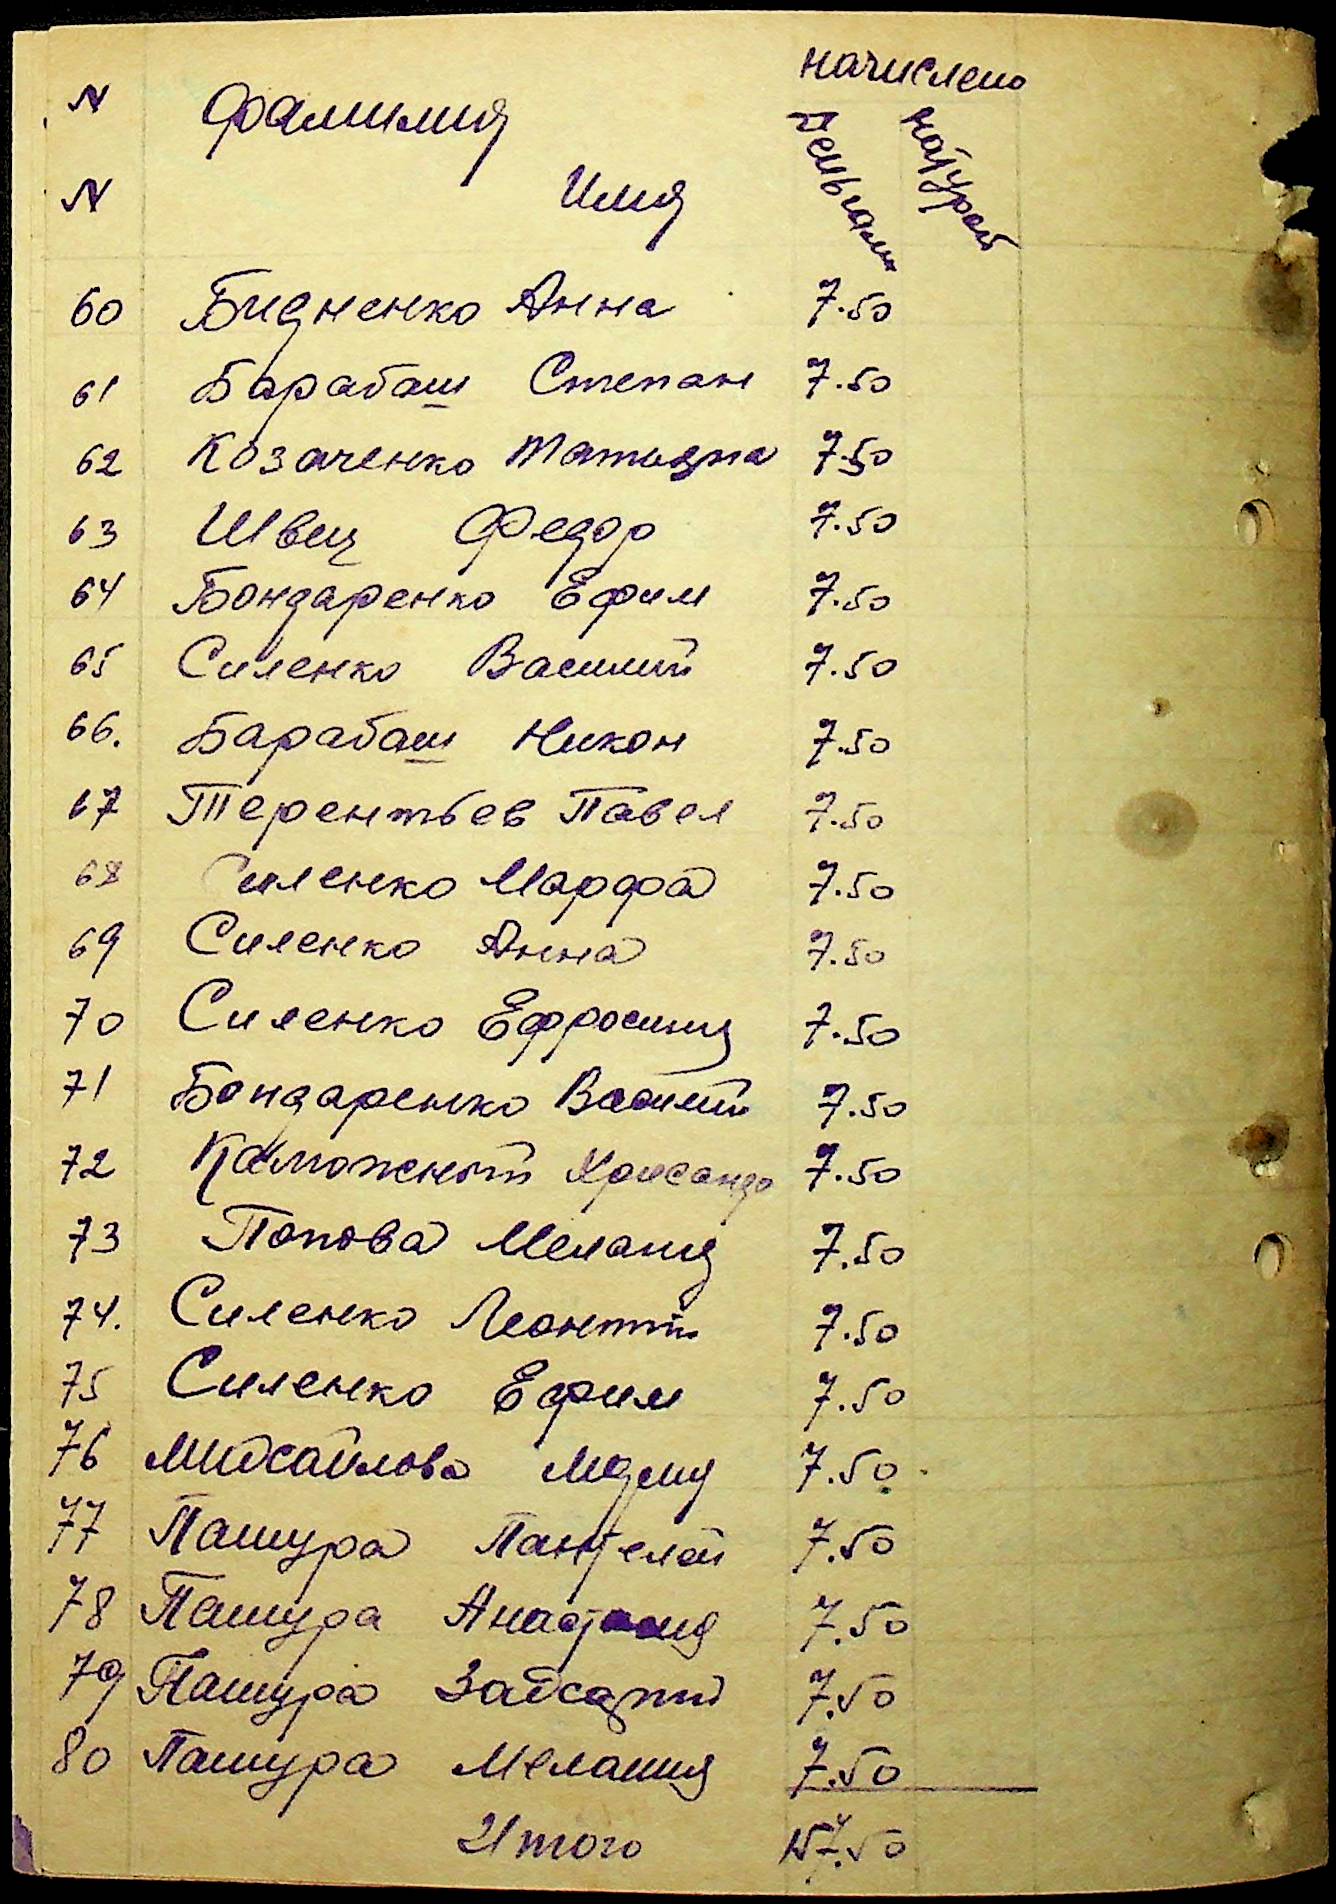 начислено
N фамилия деньгами натурой
N Имя
60 Бидненко Анна 7.50
61 Барабаш Степан 7.50
62 Козаченко Татьяна 7.50
63 Швец Федор 7.50
64 Бондаренко Ефим 7.50
65 Силенко Василий 7.50
66. Барабаш Никон 7.50
67 Терентьев Павел 7.50
68 Силенко Марфа 7.50
69 Силенко Анна 7.50
70 Силенко Ефросиния 7.50
71 Бондаренко Василий 7.50
72 7.50
73 Попова Мелания 7.50
74. Силенко Леонтий 7.50
75 Силенко Ефим 7.50
76 Михайлова 7.50
77 Пашура Пантелей 7.50
78 Пашура Анастасия 7.50
79 Пашура 7.50
80 Пашура Мелания 7.50
Итого 157.50